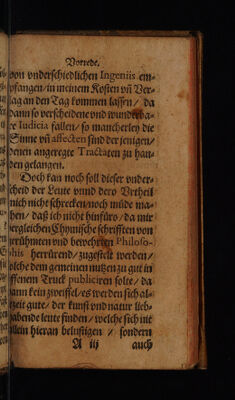 Vorrede.
von vnderschiedlichen Ingeniis em-
pfangen/ in meinem Kosten vñ Ver-
lag an den Tag kommen lassen/ da
dann so verscheidene vnd wunderba-
re Iudicia fallen/ so mancherley die
Sinne vñ affecten sind der jenigen/
denen angeregte Tractaten zu han-
den gelangen.
Doch kan noch soll dieser vnder-
scheid der Leute vnnd dero Vrtheil
mich nicht schrecken/noch müde ma-
chen/ daß ich nicht hinfüro/ da mir
dergleichen Chymische schrifften von
berühmten vnd bewehrten Philoso-
phis herrürend/ zugestelt werden/
solche dem gemeinen nutzen zu gut in
offenem Truck publiciren solte/ da
dann kein zweiffel/es werden sich al-
zeit gute/ der kunst vnd natur lieb-
habende leute finden/ welche sich nit
allein hieran belustigen / sondern
A iij auch